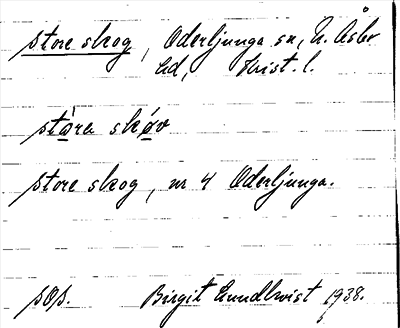 store skog, Oderljunga sn, N. Åsbo
hd, Krist. l.
stòra skóv
store skog, nr 4 Oderljunga.
sOs. Birgit Lundkvist 1938.